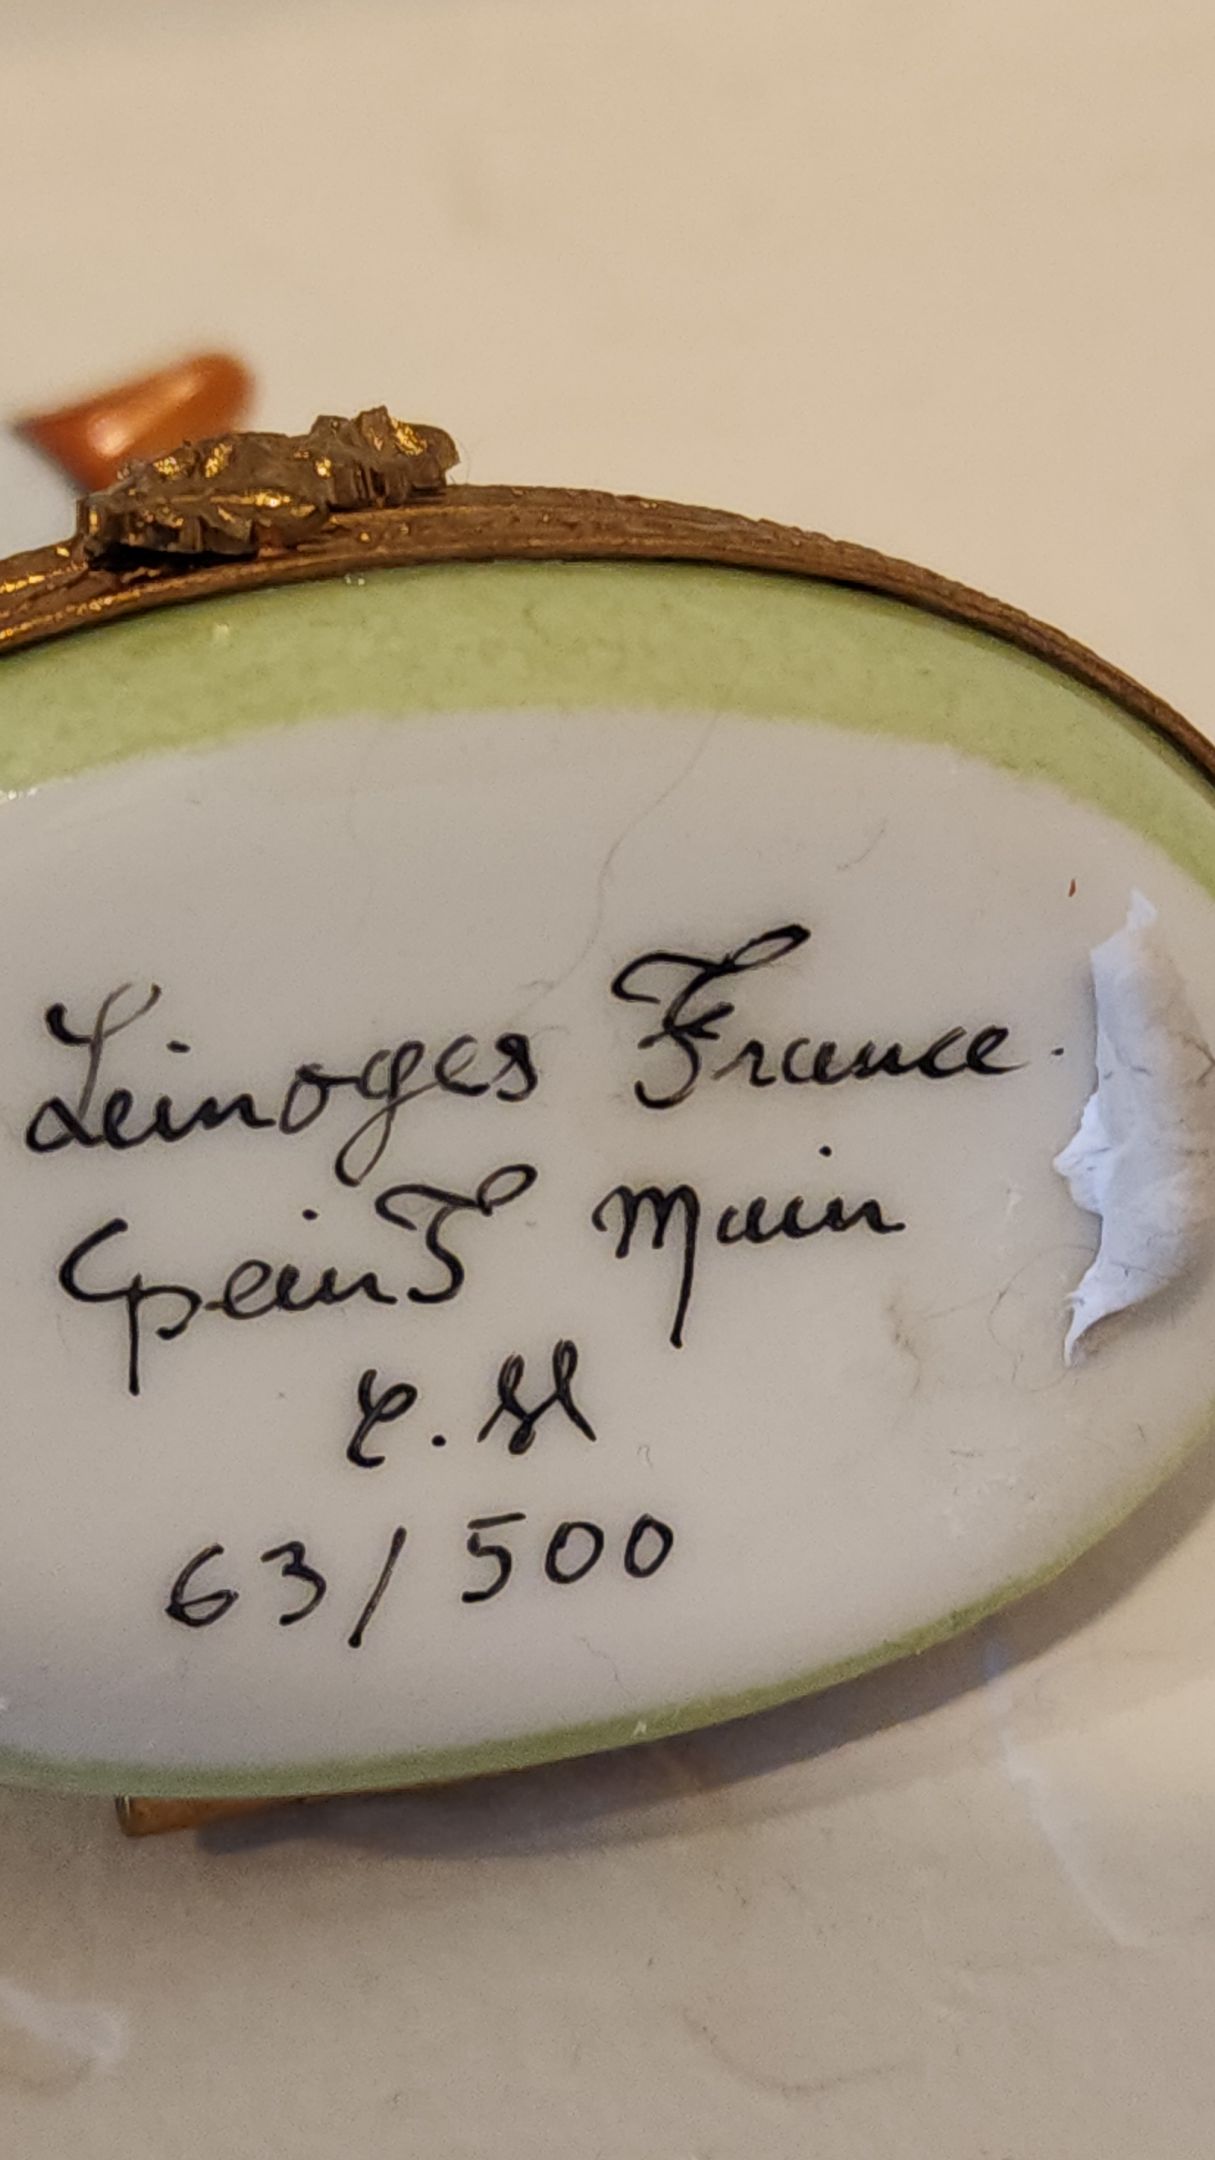 Limoges France.
peinT Main
63/500